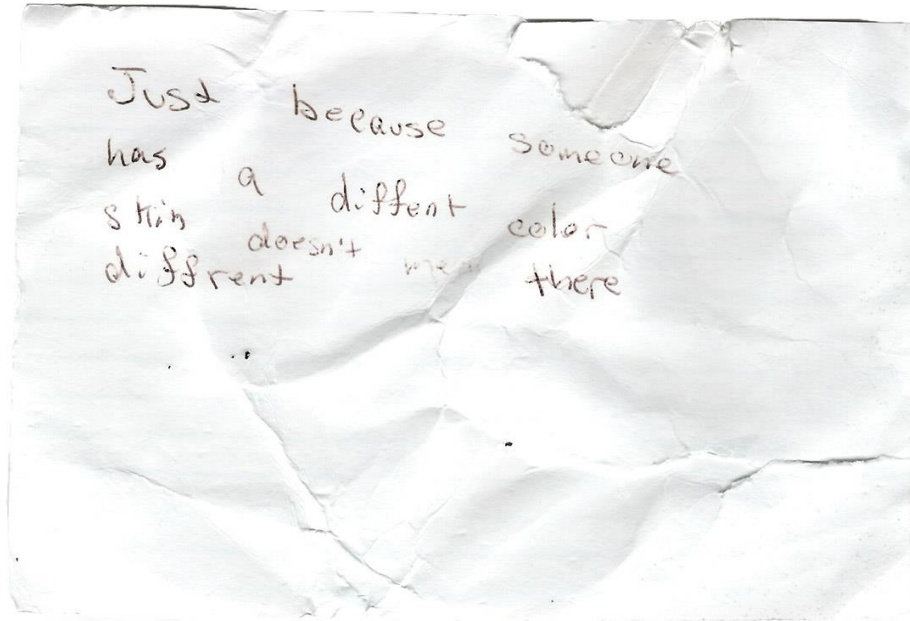 Just because someone
has a diffent color
skin doesn't there
diffrent